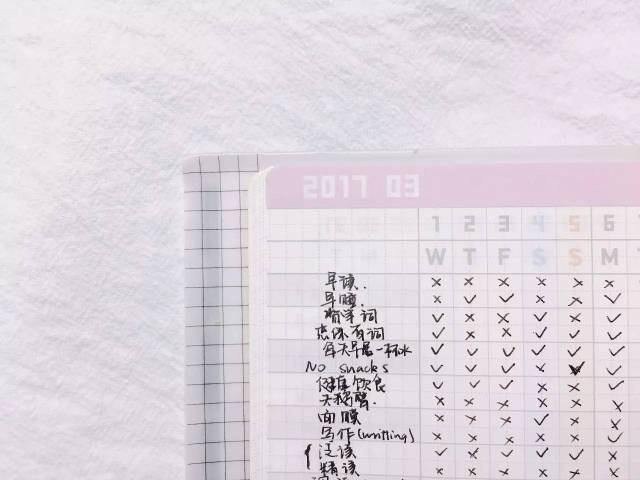 2017 03
1 2 3 4 5 6
W T F S S M
早读. × × × × × ×
早睡. × ✓ ✓ × × ✓
✓ × × ✓ × ✓
百词 ✓ × × ✓ ✓ ✓
每天早晨一杯水 ✓ ✓ ✓ ✓ ✓ ✓
No snacks ✓ ✓ ✓ × ✓ ✓
健康饮食 ✓ ✓ ✓ × × ✓
天鹅臂. × × × × × ×
面膜 × × × ✓ × ×
写作(writting) × × × × × ✓
泛读 ✓ × ✓ ✓ ✓ ×
精读 × × × × × ×